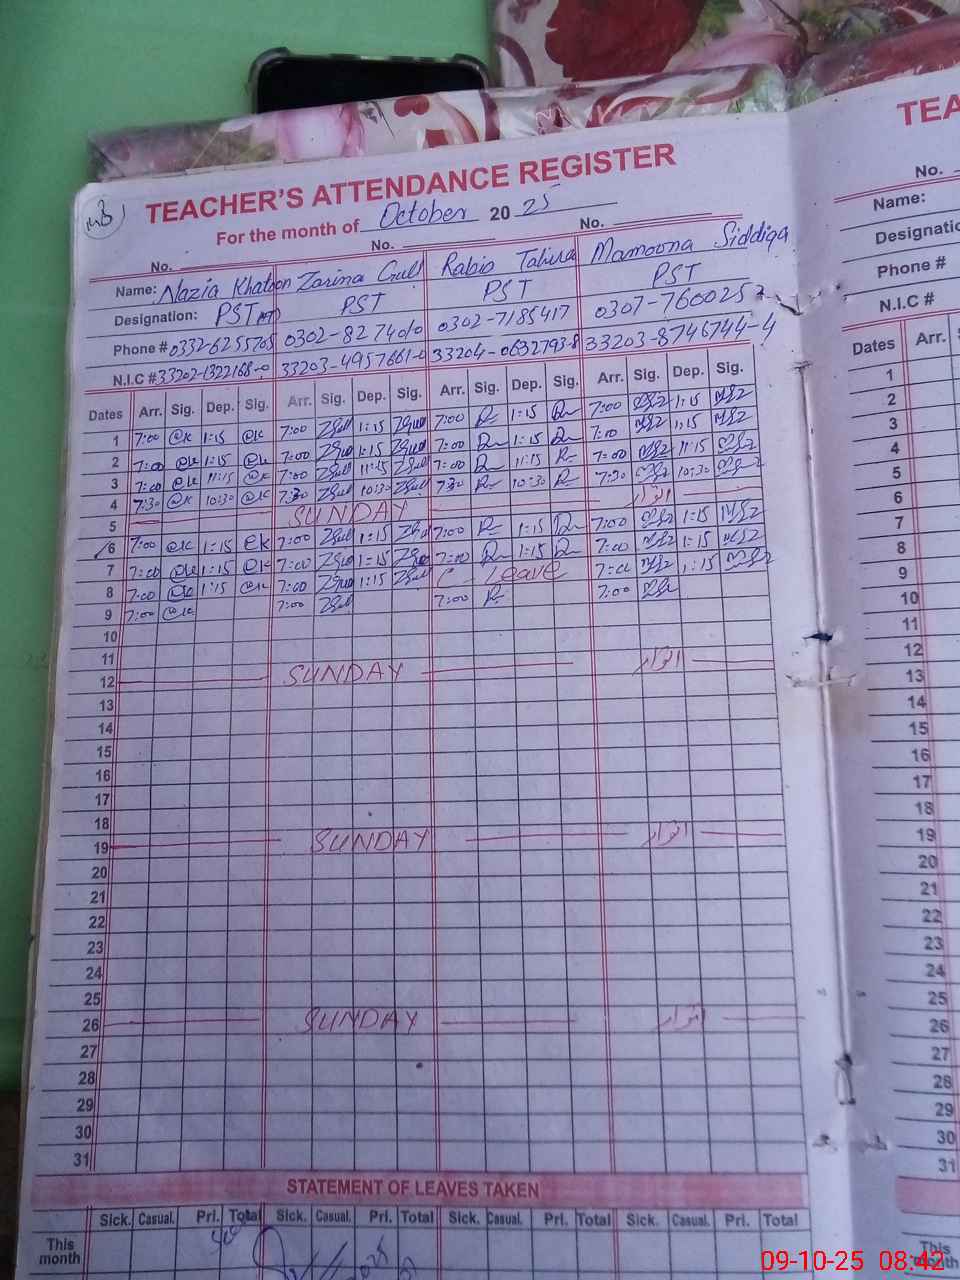 TEACHER'S ATTENDANCE REGISTER
For the month of October 2025
No. No. No.
Name: Nazia Khatoon Zarina Gull Rabia Tahira Mamoona Siddiqa
Designation: PST PST PST PST
Phone # 0332-6255705 0302-8274010 0302-7185417 0307-7600257
N.I.C # 33202-1322168-0 33203-4957661-0 33204-0632793-8 33203-8746744-4
Dates Arr. Sig. Dep. Sig. Arr. Sig. Dep. Sig. Arr. Sig. Dep. Sig. Arr. Sig. Dep. Sig.
1 7:00 1:15 7:00 1:15 7:00 1:15 7:00 1:15
2 7:00 1:15 7:00 1:15 7:00 1:15 7:00 1:15
3 7:00 11:15 7:00 11:15 7:00 11:15 7:00 11:15
4 7:30 10:30 7:30 10:30 7:30 10:30 7:30 10:30
5 SUNDAY اتوار
6 7:00 1:15 7:00 1:15 7:00 1:15 7:00 1:15
7 7:00 1:15 7:00 1:15 7:00 1:15 7:00 1:15
8 7:00 1:15 7:00 1:15 C - Leave 7:00 1:15
9 7:00 7:00 7:00 7:00
10
11
12 SUNDAY اتوار
13
14
15
16
17
18
19 SUNDAY اتوار
20
21
22
23
24
25
26 SUNDAY اتوار
27
28
29
30
31
STATEMENT OF LEAVES TAKEN
Sick. Casual. Pri. Total Sick. Casual. Pri. Total Sick. Casual. Pri. Total Sick. Casual. Pri. Total
This month
TEA
No.
Name:
Designatio
Phone #
N.I.C #
Dates Arr.
1
2
3
4
5
6
7
8
9
10
11
12
13
14
15
16
17
18
19
20
21
22
23
24
25
26
27
28
29
30
31
This
month
09-10-25 08:42